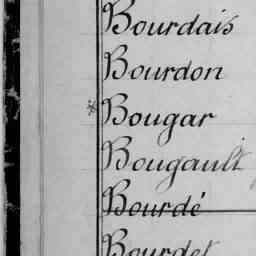 Bourdais
Bourdon
* Bougar
Bougault
Bourdé
Bourdet